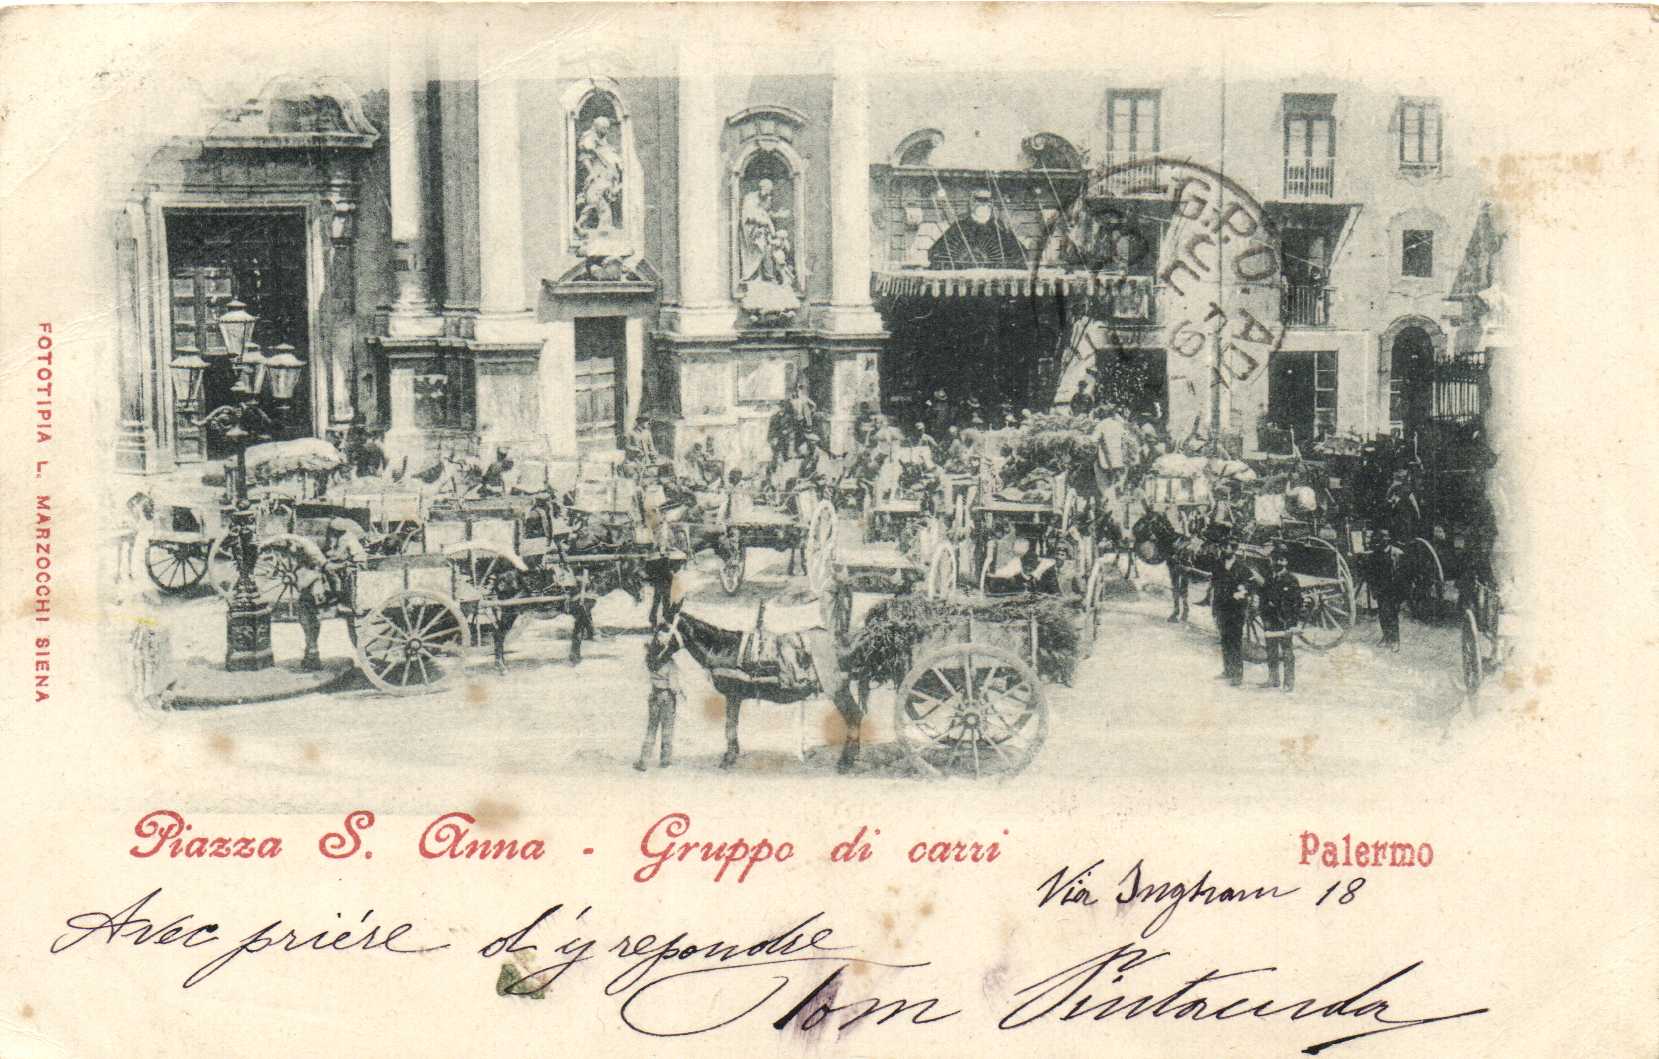 G.P.O. ADE
FOTOTIPIA L. MARZOCCHI SIENA
Piazza S. Anna - Gruppo di carri
Palermo
Via Ingham 18
Avec priére d'y repondre
Tom Pintacuda